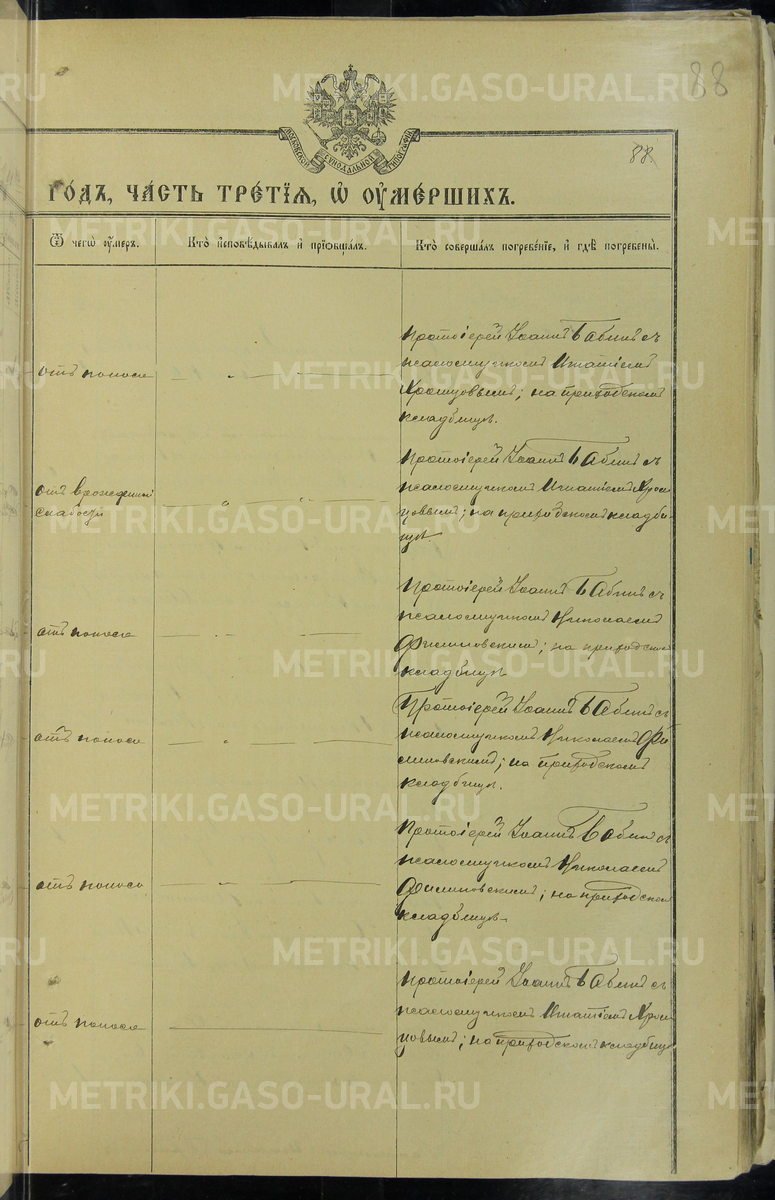 88
88.
МОСКОВСКОЙ СѴНОДАЛЬНОЙ ТИПОГРАФІИ
го́дъ, ча́сть тре́тїѧ, ѡ҆ ᲂу҆ме́ршихъ.
Ѿ чегѡ̀ ᲂу҆́меръ.
Кто̀ и҆сповѣ́дывалъ и҆ прїѡбща́лъ.
Кто̀ соверша́лъ погребе́нїе, и҆ гдѣ̀ погребены̀.
отъ поноса
Протоіерей Іоаннъ Бабинъ съ
псаломщикомъ Игнатіемъ
Хромцовымъ; на приходскомъ
кладбищѣ.
отъ врожденной
слабости
Протоіерей Іоаннъ Бабинъ съ
псаломщикомъ Игнатіемъ Хром
цовымъ; на приходскомъ кладби
щѣ.
отъ поноса
Протоіерей Іоаннъ Бабинъ съ
псаломщикомъ Николаемъ
Филиновскимъ; на приходском
кладбищѣ
отъ поноса
Протоіерей Іоаннъ Бабинъ съ
псаломщикомъ Николаемъ Фи
линовскимъ; на приходскомъ
кладбищѣ.
отъ поноса
Протоіерей Іоаннъ Бабин съ
псаломщикомъ Николаемъ
Филиновскимъ; на приходском
кладбищѣ.
отъ поноса
Протоіерей Іоаннъ Бабинъ съ
псаломщикомъ Игнатіемъ Хром
цовымъ; на приходскомъ кладбищѣ
METRIKI.GASO-URAL.RU